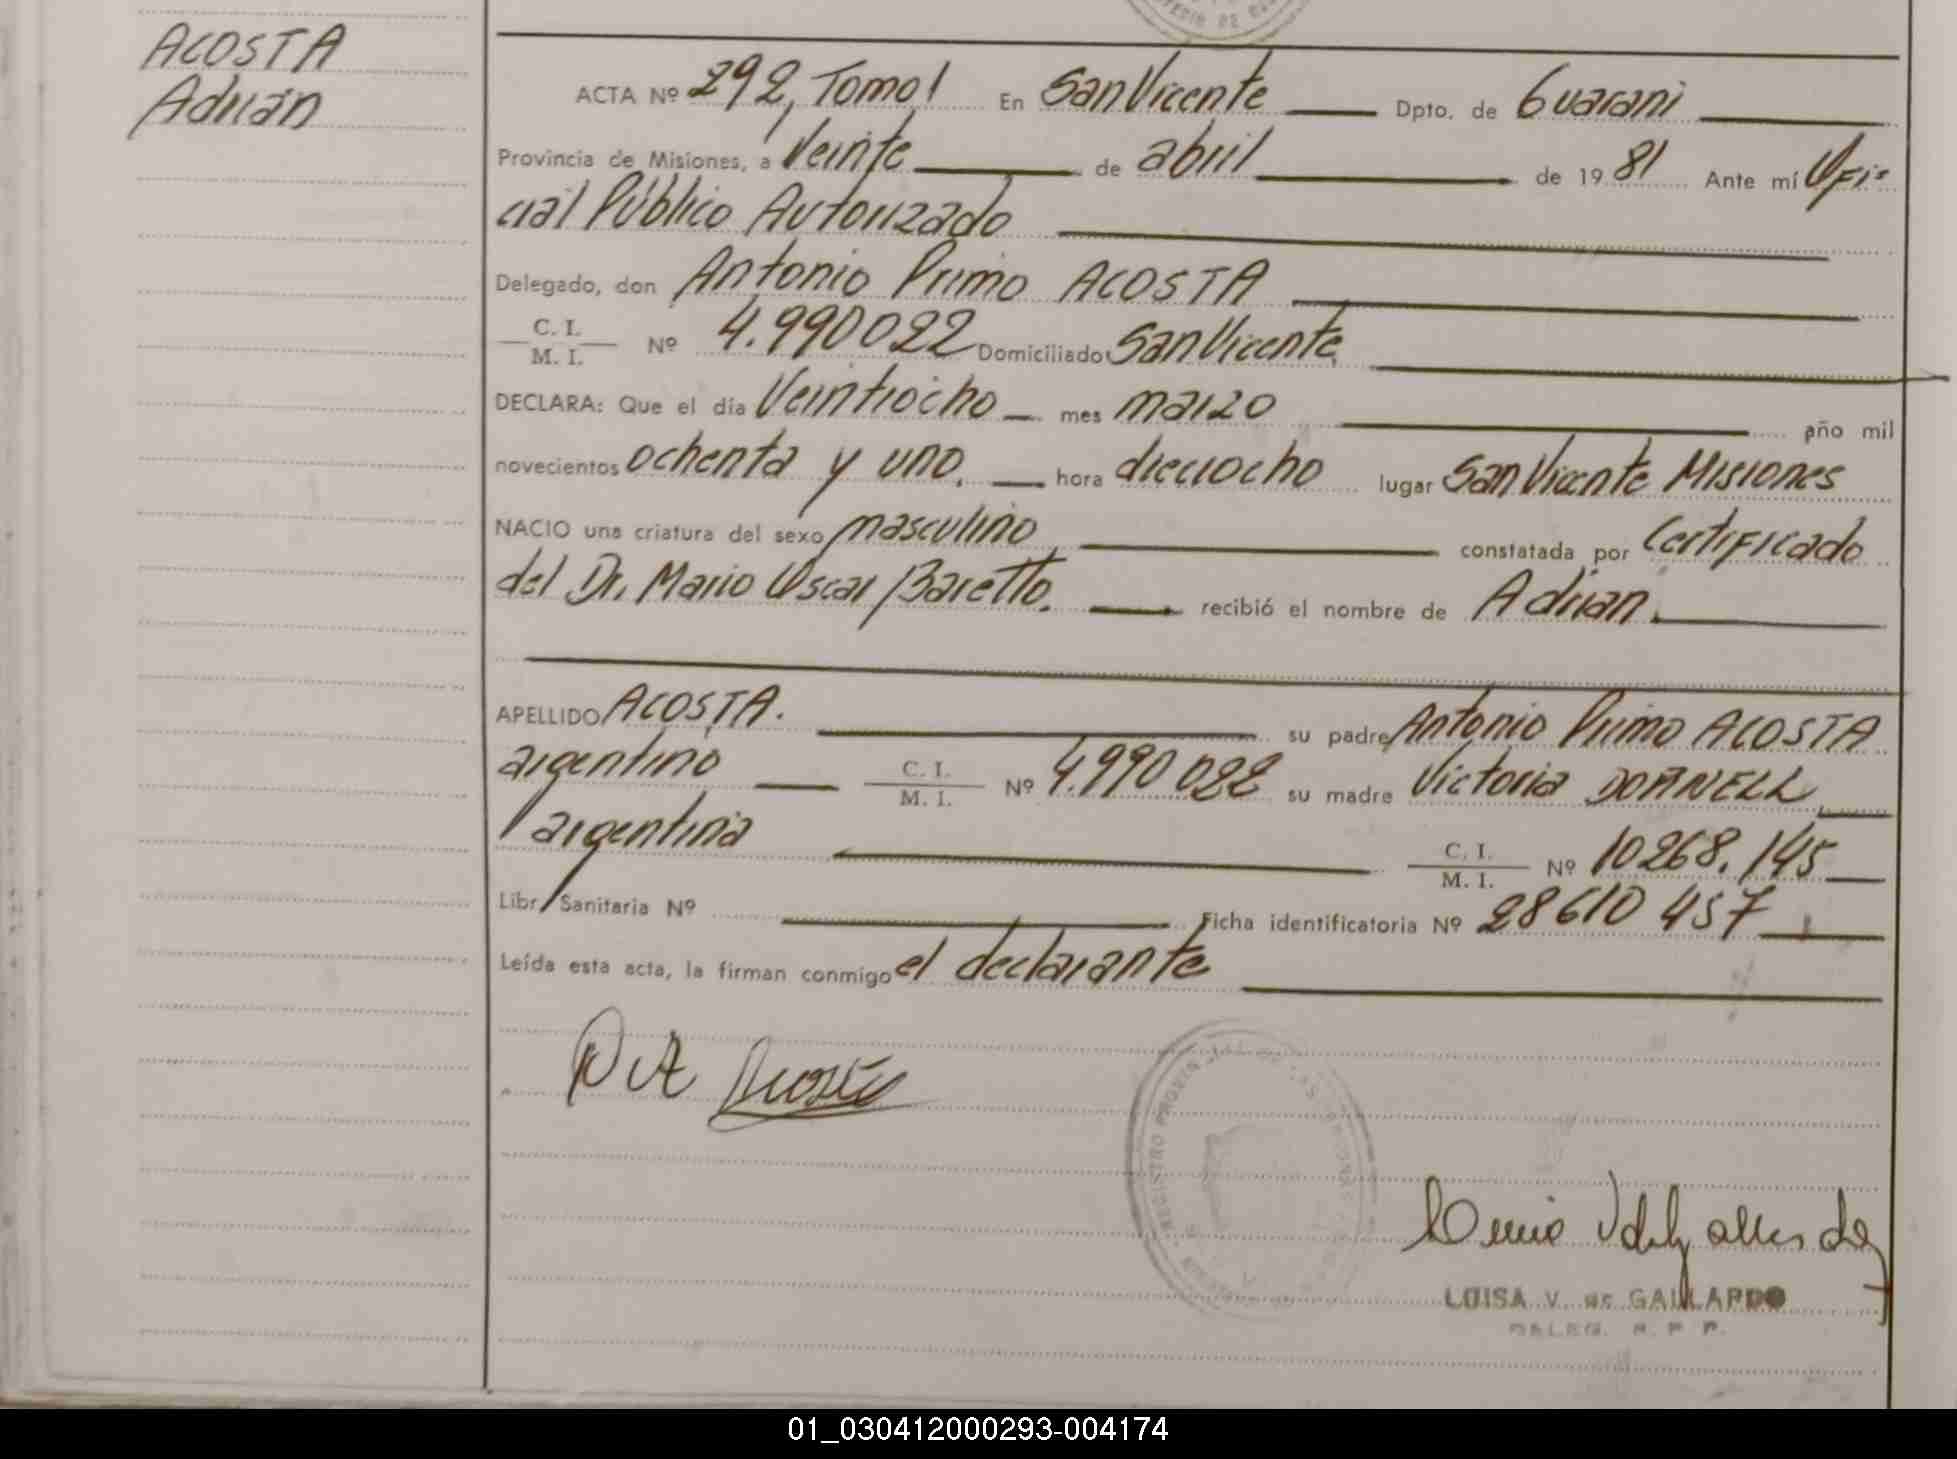 ACOSTA
Adrián
ACTA Nº 292, Tomo I En San Vicente Dpto. de Guaraní
Provincia de Misiones, a Veinte de abril de 1981 Ante mí Ofi-
cial Público Autorizado
Delegado, don Antonio Primo ACOSTA
C. I.
M. I. Nº 4.990022 Domiciliado San Vicente
DECLARA: Que el día Veintiocho mes marzo año mil
novecientos ochenta y uno. hora dieciocho lugar San Vicente Misiones
NACIO una criatura del sexo masculino constatada por Certificado
del Dr. Mario Oscar Baretto. recibió el nombre de Adrian
APELLIDO ACOSTA. su padre Antonio Primo ACOSTA
argentino C. I.
M. I. Nº 4.990022 su madre Victoria DORNELL
argentina C. I.
M. I. Nº 10268.145
Libr. Sanitaria Nº Ficha identificatoria Nº 28610457
Leída esta acta, la firman conmigo el declarante
REGISTRO PROVINCIAL DE LAS PERSONAS
LUISA V. de GALLARDO
DELEG. R. P. P.
01_030412000293-004174